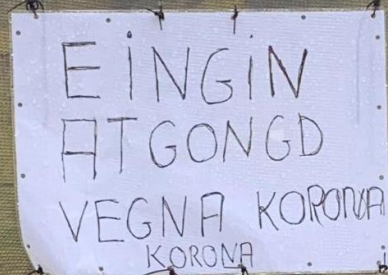 EINGIN
ATGONGD
VEGNA KORONA
KORONA